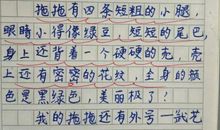 拖拖有四条短粗的小腿，
眼睛小得像绿豆，短短的尾巴，
身上还背着一个硬硬的壳，壳
上还有密密的花纹，全身的颜
色是黑绿色，美丽极了？
我的拖拖还有外号一贰范